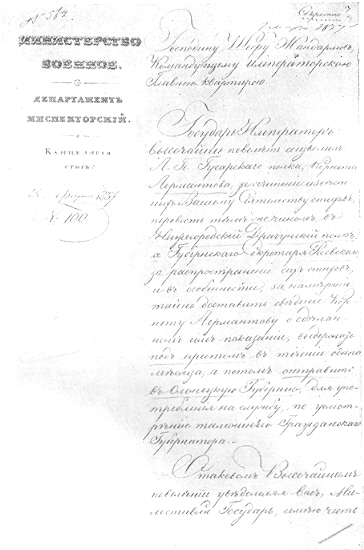 Секретно
МИНИСТЕРСТВО
ВОЕННОЕ.
ДЕПАРТАМЕНТЪ
ИНСПЕКТОРСКІЙ.
Канцелярія
столъ
1837
№ 100
Господину Шефу Жандармовъ,
Командующему Императорскою
Главною квартирою
Государь Императоръ
Высочайше повелѣть соизволилъ
Л. Гв. Гусарскаго полка, Корнета
Лермантова, за сочиненіе извѣст-
ныхъ Вашему Сіятельству стиховъ,
перевесть тѣмъ же чиномъ въ
Нижегородскій Драгунскій полкъ,
а Губернскаго Секретаря Раевскаго
за распространеніе сихъ стиховъ,
и въ особенности, за намѣреніе
тайно доставить свѣденіе Кор-
нету Лермантову о сдѣлан-
номъ имъ показаніи, выдержать
подъ арестомъ въ теченіи одного
мѣсяца, а потомъ отправить
въ Олонецкую Губернію, для упо-
требленія на службу, по усмот-
рѣнію тамошняго Гражданскаго
Губернатора.
О таковомъ Высочайшемъ
повелѣніи увѣдомляя Васъ, Ми-
лостивый Государь, имѣю честь